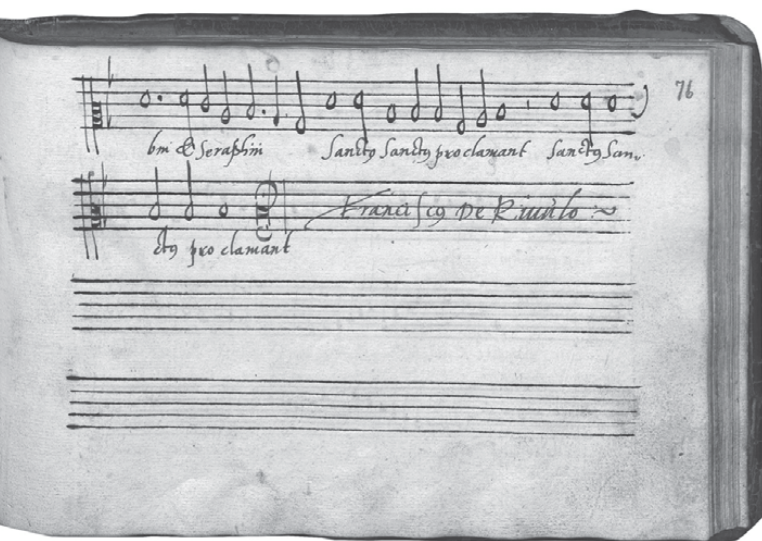 76
bin & Seraphin Sanctꝯ Sanctꝯ proclamant Sanctꝯ San-
ctꝯ proclamant Franciscꝯ De Riuulo